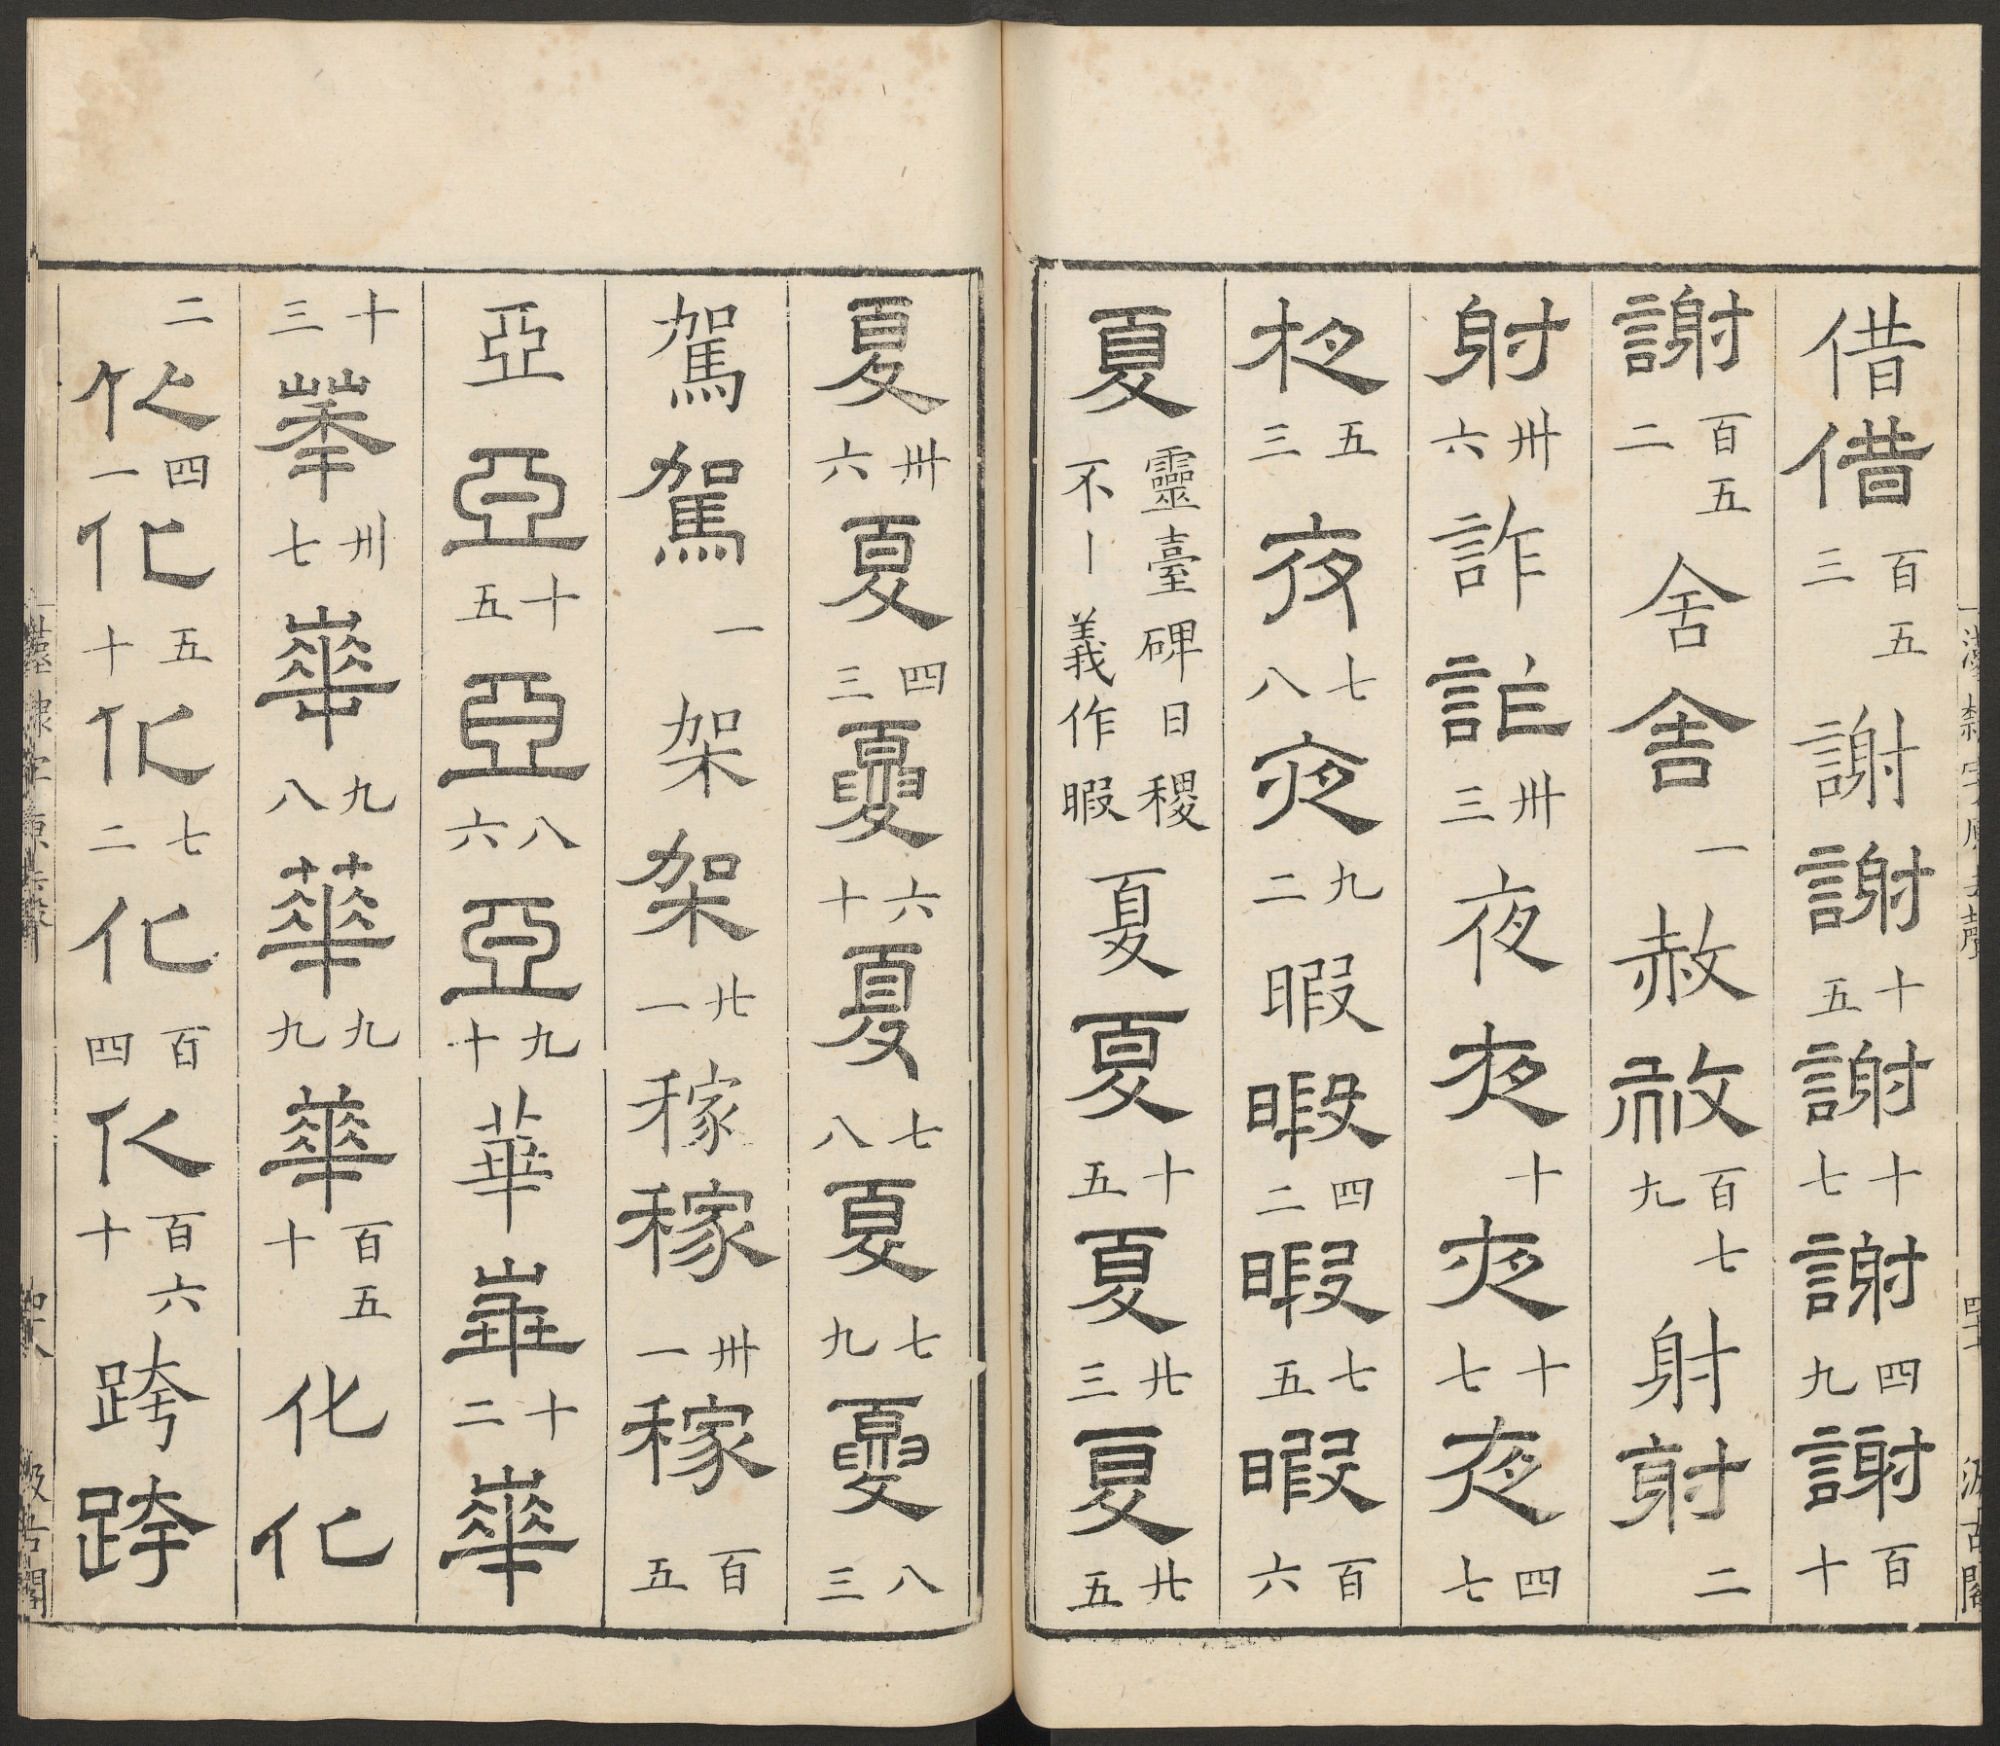 借借百五三謝謝十五謝十七謝四九謝百十
謝百五二舍舍一赦赦百七九射射二
射卅六詐詐卅三夜夜十夜十七夜四七
夜五三夜七八夜九二暇暇四二暇七五暇百六
夏靈臺碑日稷不丨義作暇夏夏十五夏廿三夏廿五
夏卅六夏四三夏六十夏七八夏七九夏八三
駕駕一架架廿一稼稼卅一稼百五
亞亞十五亞八六亞九十華華十二華
十三華卅七華九八華九九華百五十化化
二化四一化五十化七二化百四化百六十跨跨
汲古閣